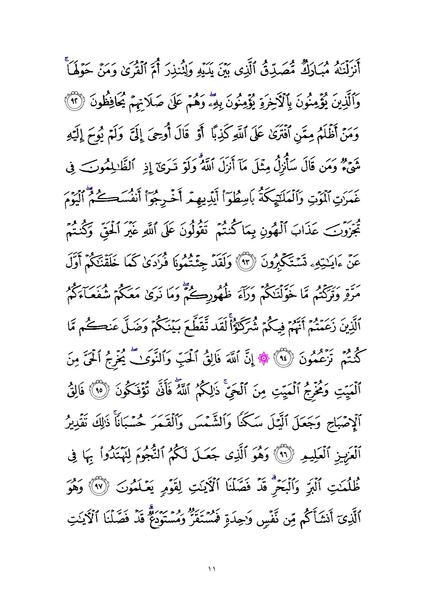 أَنزَلْنَٰهُ مُبَارَكٌ مُّصَدِّقُ ٱلَّذِى بَيْنَ يَدَيْهِ وَلِتُنذِرَ أُمَّ ٱلْقُرَىٰ وَمَنْ حَوْلَهَا ۚ
وَٱلَّذِينَ يُؤْمِنُونَ بِٱلْءَاخِرَةِ يُؤْمِنُونَ بِهِۦ ۖ وَهُمْ عَلَىٰ صَلَاتِهِمْ يُحَافِظُونَ ﴿٩٢﴾
وَمَنْ أَظْلَمُ مِمَّنِ ٱفْتَرَىٰ عَلَى ٱللَّهِ كَذِبًا أَوْ قَالَ أُوحِىَ إِلَىَّ وَلَمْ يُوحَ إِلَيْهِ
شَىْءٌ وَمَن قَالَ سَأُنزِلُ مِثْلَ مَآ أَنزَلَ ٱللَّهُ ۗ وَلَوْ تَرَىٰٓ إِذِ ٱلظَّٰلِمُونَ فِى
غَمَرَٰتِ ٱلْمَوْتِ وَٱلْمَلَٰٓئِكَةُ بَاسِطُوٓا۟ أَيْدِيهِمْ أَخْرِجُوٓا۟ أَنفُسَكُمُ ۖ ٱلْيَوْمَ
تُجْزَوْنَ عَذَابَ ٱلْهُونِ بِمَا كُنتُمْ تَقُولُونَ عَلَى ٱللَّهِ غَيْرَ ٱلْحَقِّ وَكُنتُمْ
عَنْ ءَايَٰتِهِۦ تَسْتَكْبِرُونَ ﴿٩٣﴾ وَلَقَدْ جِئْتُمُونَا فُرَٰدَىٰ كَمَا خَلَقْنَٰكُمْ أَوَّلَ
مَرَّةٍ وَتَرَكْتُم مَّا خَوَّلْنَٰكُمْ وَرَآءَ ظُهُورِكُمْ ۖ وَمَا نَرَىٰ مَعَكُمْ شُفَعَآءَكُمُ
ٱلَّذِينَ زَعَمْتُمْ أَنَّهُمْ فِيكُمْ شُرَكَٰٓؤُا۟ ۚ لَقَد تَّقَطَّعَ بَيْنَكُمْ وَضَلَّ عَنكُم مَّا
كُنتُمْ تَزْعُمُونَ ﴿٩٤﴾ ۞ إِنَّ ٱللَّهَ فَالِقُ ٱلْحَبِّ وَٱلنَّوَىٰ ۖ يُخْرِجُ ٱلْحَىَّ مِنَ
ٱلْمَيِّتِ وَمُخْرِجُ ٱلْمَيِّتِ مِنَ ٱلْحَىِّ ۚ ذَٰلِكُمُ ٱللَّهُ ۖ فَأَنَّىٰ تُؤْفَكُونَ ﴿٩٥﴾ فَالِقُ
ٱلْإِصْبَاحِ وَجَعَلَ ٱلَّيْلَ سَكَنًا وَٱلشَّمْسَ وَٱلْقَمَرَ حُسْبَانًا ۚ ذَٰلِكَ تَقْدِيرُ
ٱلْعَزِيزِ ٱلْعَلِيمِ ﴿٩٦﴾ وَهُوَ ٱلَّذِى جَعَلَ لَكُمُ ٱلنُّجُومَ لِتَهْتَدُوا۟ بِهَا فِى
ظُلُمَٰتِ ٱلْبَرِّ وَٱلْبَحْرِ ۗ قَدْ فَصَّلْنَا ٱلْءَايَٰتِ لِقَوْمٍ يَعْلَمُونَ ﴿٩٧﴾ وَهُوَ
ٱلَّذِىٓ أَنشَأَكُم مِّن نَّفْسٍ وَٰحِدَةٍ فَمُسْتَقَرٌّ وَمُسْتَوْدَعٌ ۗ قَدْ فَصَّلْنَا ٱلْءَايَٰتِ
١١